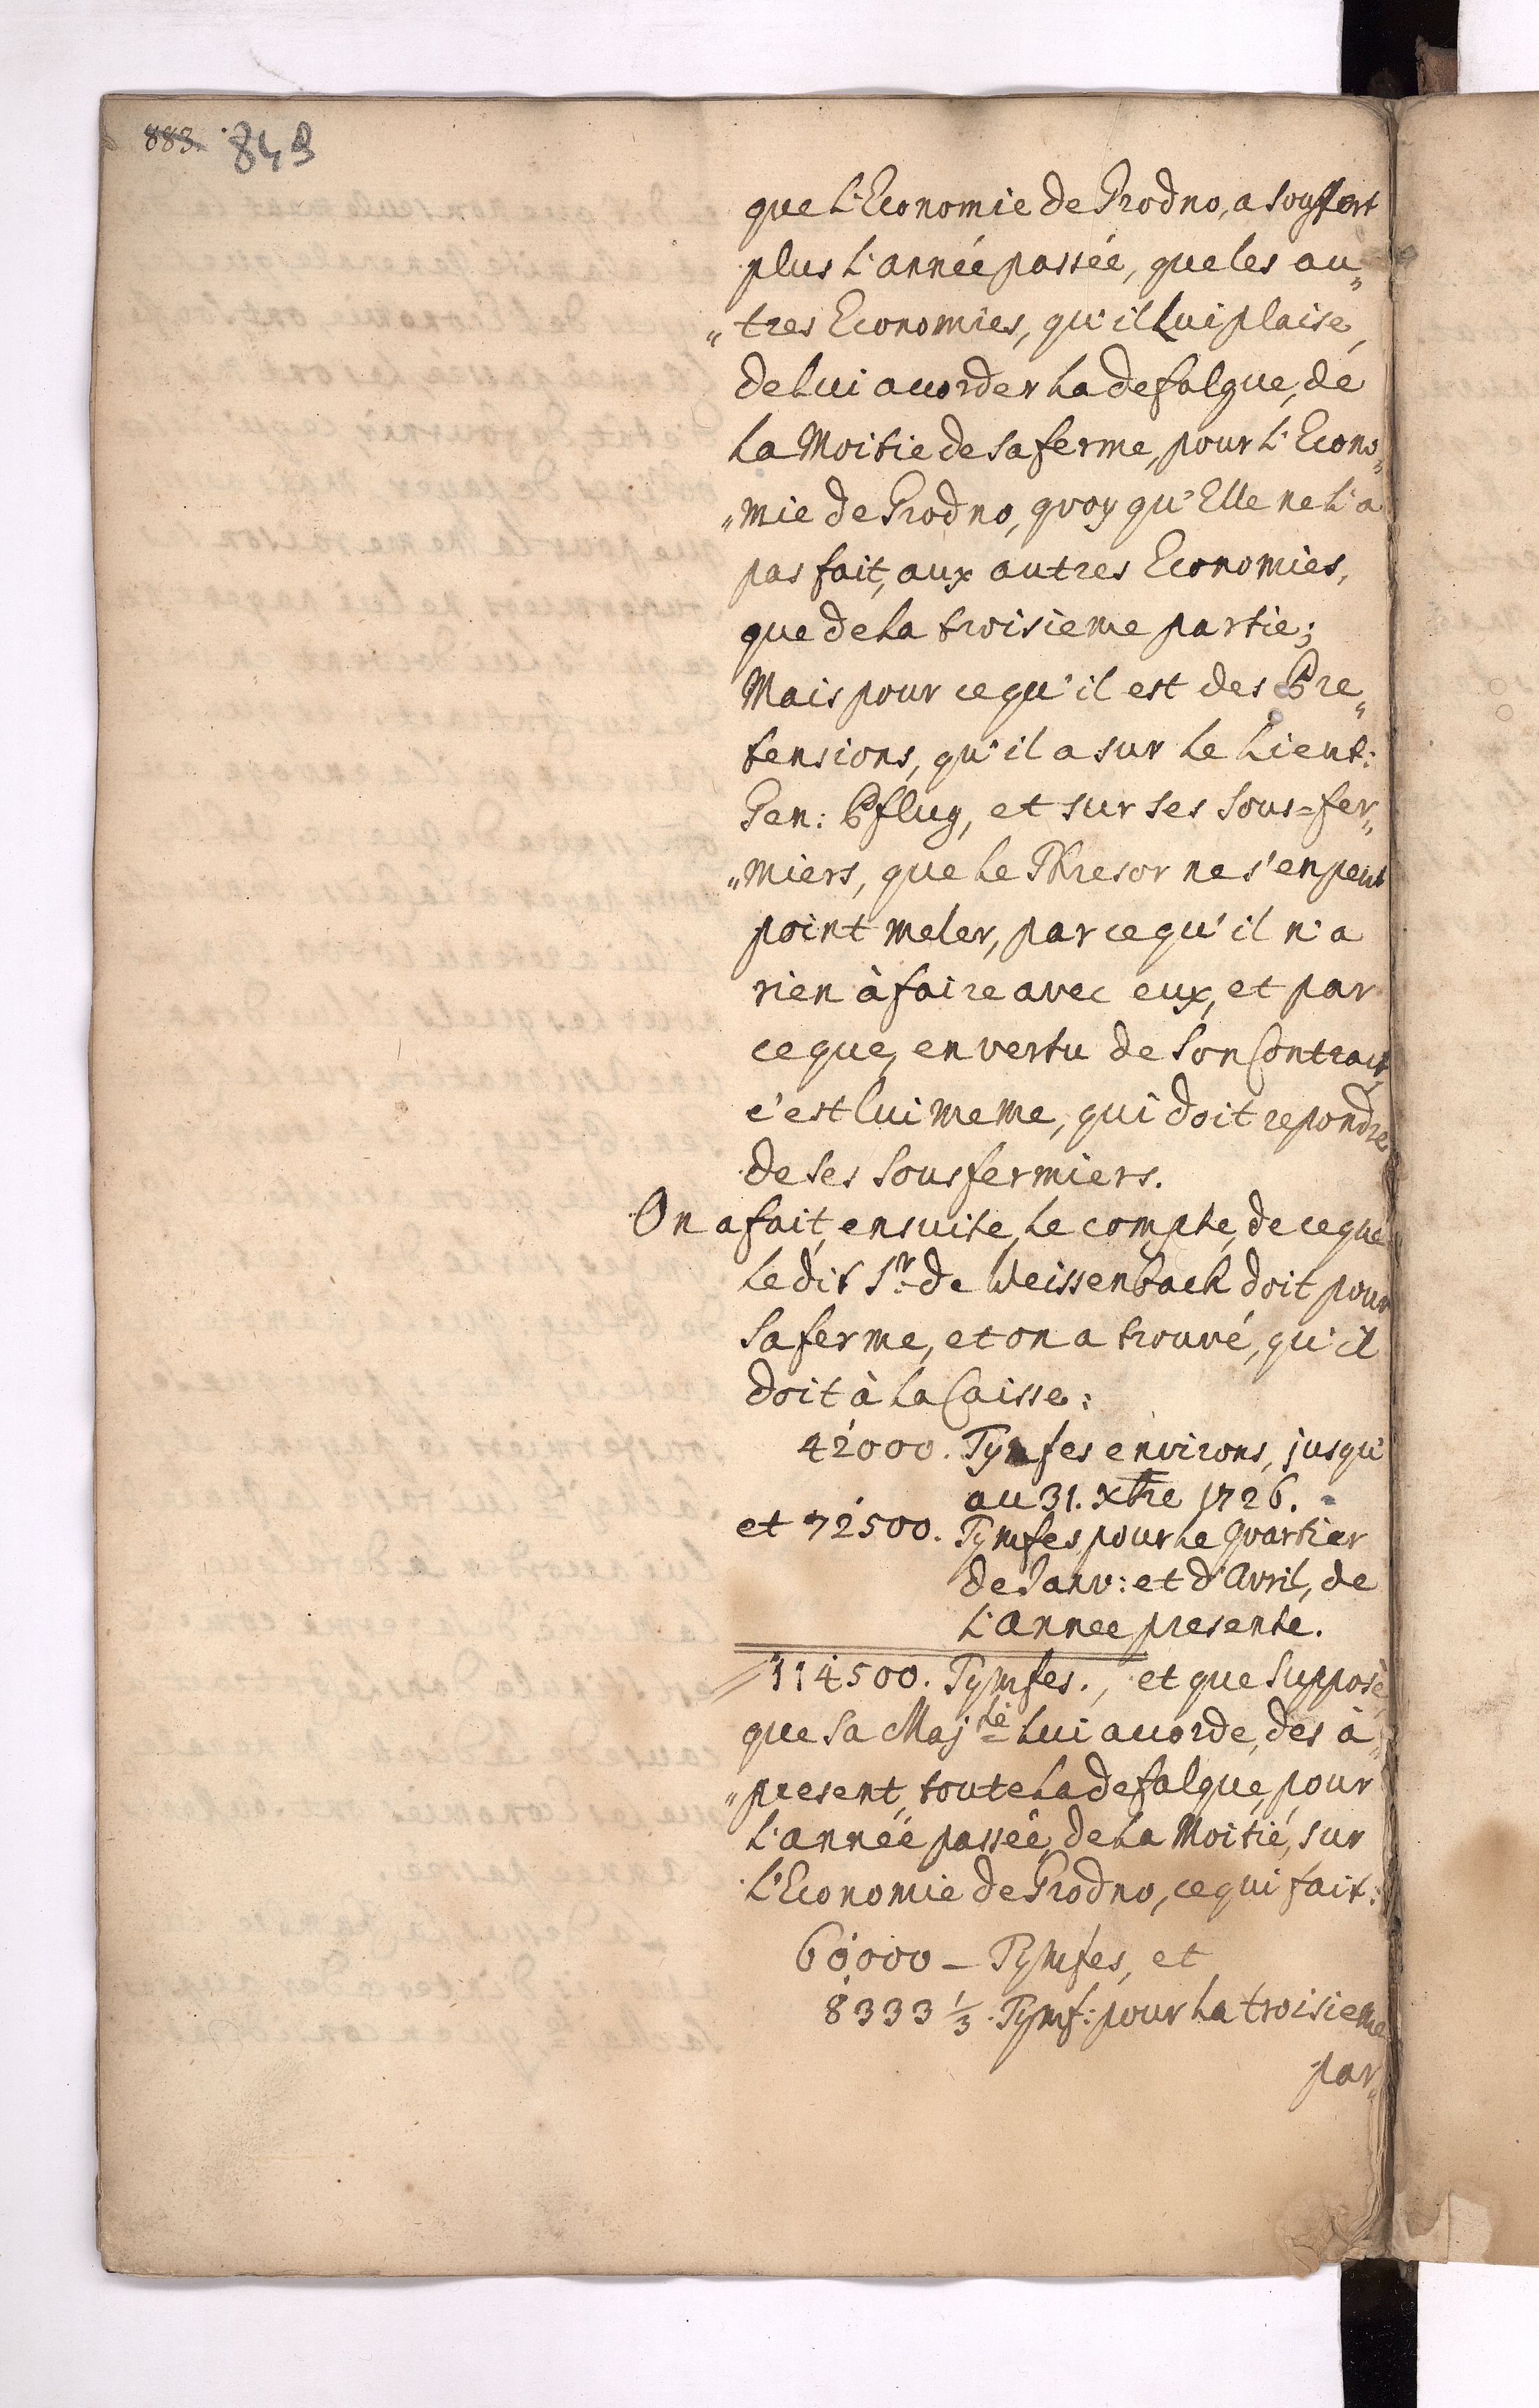 883. 849
que L'Economie de Grodno, a souffert
plus L'année passée, que les au„
„tres Economies, qu'il Lui plaise,
de Lui acorder La defalque, de
La Moitie de sa ferme, pour L'Econo„
„mie de Grodno, quoy qu'Elle ne L'a
pas fait, aux autres Economies,
que de La troisieme partie;
Mais pour ce qu'il est des Pre„
tensions, qu'il a sur Le Lieut:
Gen: Pflug, et sur ses Sous=fer„
„miers, que Le Thresor ne s'en peut
point meler, parce qu'il n'a
rien à faire avec eux, et par
ce que, en vertu de Son Contract,
c'est Lui meme, qui doit repondre
de Ses Sousfermiers.
On a fait, ensuite, Le compte, de ce que
Le dit Sr. de Weissenbach doit pour
Sa ferme, et on a trouvé, qu'il
doit à La Caisse:
42000. Tymfes environs, jusqu'
au 31. Xbre 1726.
et 72500. Tymfes, pour Le Quartier
de Janv: et d'Avril, de
L'Annee presente.
114500. Tymfes., et que Supposé,
que Sa Majté Lui acorde, des à„
„present, toute La defalque, pour
L'année passée, de La Moitié, sur
L'Economie de Grodno, ce qui fait:
60000 – Tymfes, et
8333 1/3. Tymf: pour La troisieme
par„